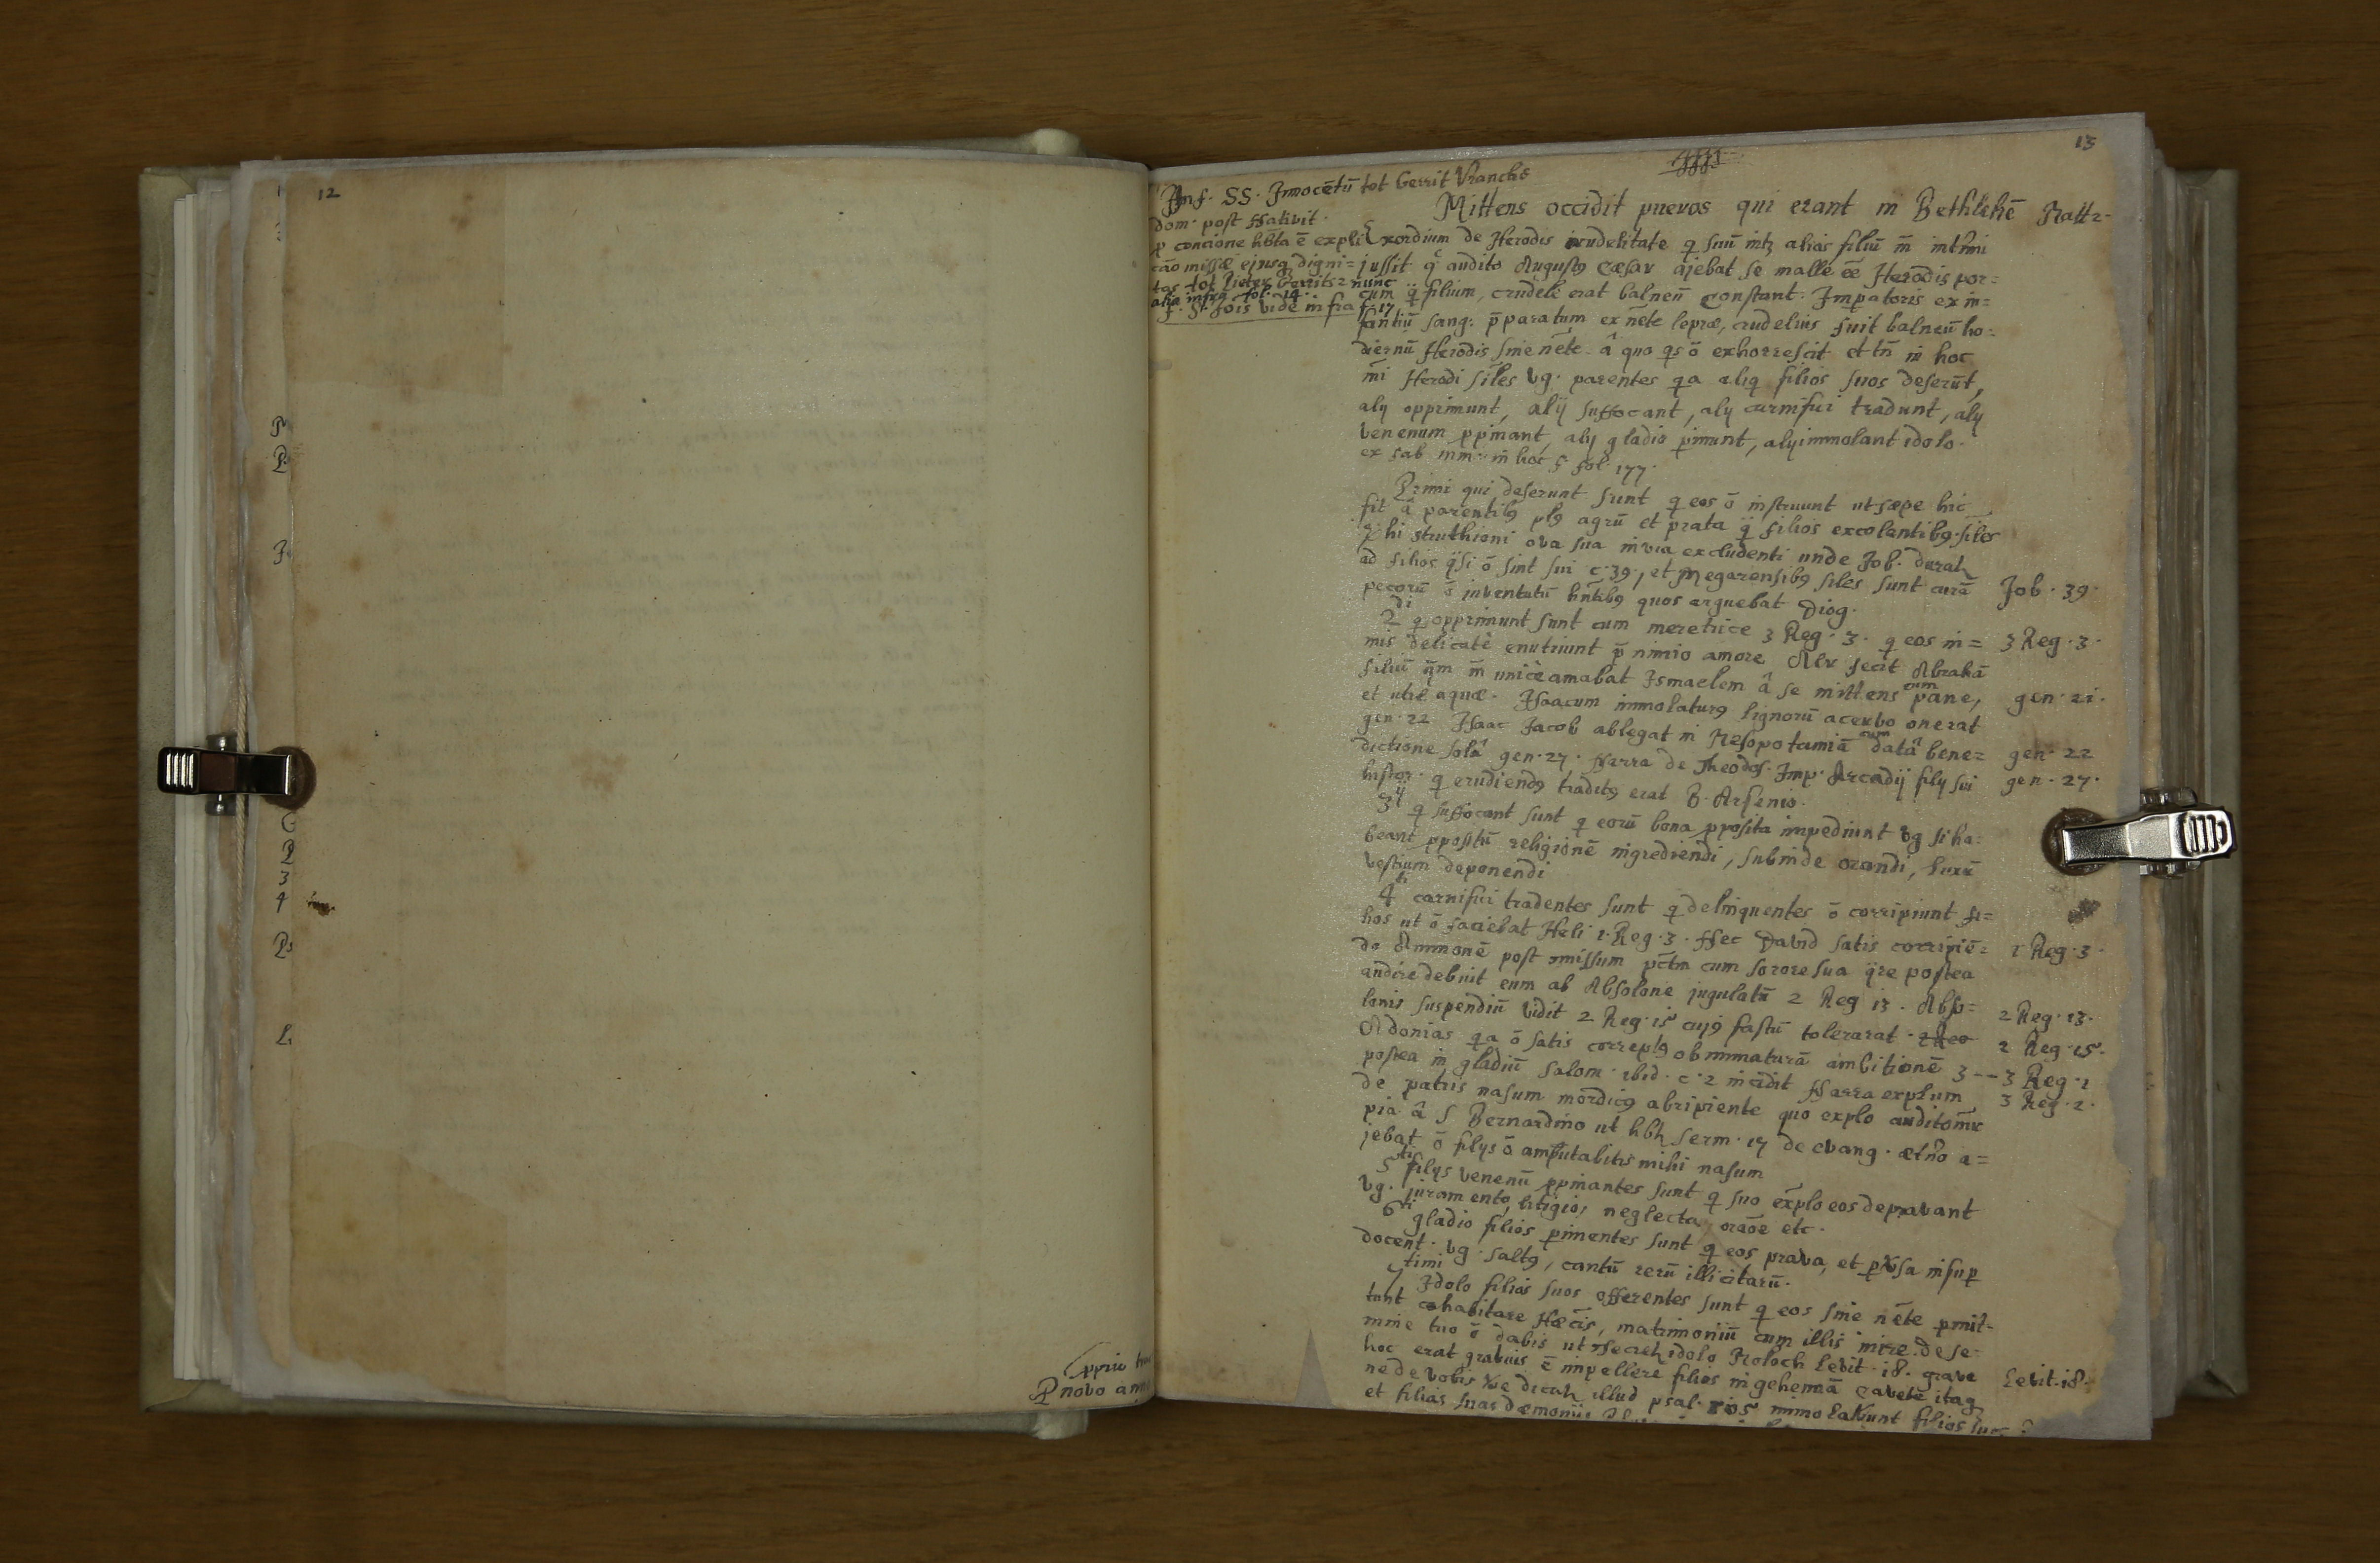 12
13
Inf. SS. Innocētū tot Gerrit Vranchs
dom. post Nativit.
p concione hbta ē expli
cāo missæ ejusq digni=
tas tot Pieter Gerrits
alia infra fol. 14.
f. St. Jois vide infra f 17
Mittens occidit pueros qui erant in Bethlehē Matt 2.
Exordium de Herodis crudelitate q suū intz alios filiū
jussit audito August9 Cæsar ajebat se malle ēē Herodis por=
cum filium, crudele erat balneū Constant. Impatoris ex in=
fantiū sang. p̄paratum ex nēte lepræ, crudelius fuit balneū ho=
diernū Herodis sine nēte â quo qs ō exhorrescit et tn̄ in hoc
Herodi siles vg. parentes qa aliq filios suos deserūt,
alij opprimunt, alij suffocant, alij carnifici tradunt, alij
venenum ppinant, alij gladio pimunt, alij immolant idolo.
ex fab in hoc f. fol. 177.
Primi qui deserunt sunt q eos ō instruunt ut sæpe hic
fit â parentib9 pl9 agrū et prata q̄ filios excolentib9. siles
hi struthioni ova sua in via excludenti unde Job. durat
ad filios q̄si ō sint sui c. 39, et Megarensib9 siles sunt curā Job. 39.
pecorū ō juventutū hn̄tib9 quos arguebat Diog.
2di q opprimunt sunt cum meretrice 3 Reg. 3. q eos ni= 3 Reg. 3.
mis delicatê enutriunt p̄ nimio amore Alr fecit Abrahā
filiū unicê amabat Ismaelem â se mittens cum pane, gen. 21.
et utre aquæ. Isaacum immolatur9 lignorū acervo onerat
gen. 22 Isaac Jacob ablegat in Mesopotamiā cum datâ bene= gen. 22
dictione solâ gen. 27. Narra de Theodos. Imp. Arcadij filij sui gen. 27.
histor. q erudiend9 tradit9 erat B. Arsenio.
3ij q suffocant sunt q eorū bona pposita impediunt vg si ha=
beant ppositū religionē ingrediendi, subinde orandi, luxū
vestium deponendi
4ti carnifici tradentes sunt q delinquentes ō corripiunt fi=
lios ut ō faciebat Heli 1. Reg. 3. Nec David satis corripiē= 1 Reg. 3.
do Ammonē post omissum pctm cum sorore sua q̄re postea
audire debuit eum ab Absolone jugulatū 2 Reg 13. Abso= 2 Reg. 13.
lonis suspendiū vidit 2 Reg. 15 cuj9 fastū tolerarat. 2 Reg. 15.
Adonias qa ō satis corrept9 ob immaturā ambitionē 3 -- 3 Reg. 1
postea in gladiū Salom. ibid. c. 2 incidit Narra explum 3 Reg. 2.
de patris nasum mordic9 abripiente quo explo
pia â S Bernardino ut hbt serm. 17 de evang. ætno a=
jebat ō filijs ō amputabitis mihi nasum
5ti filijs venenū ppinantes sunt q suo explo eos depravant
vg. juramento, litigio, neglecta oraōe etc.
6ti gladio filios pimentes sunt q eos prava, et pvsa insup
docent. vg. salt9, cantū rerū illicitarū.
7timi Idolo filios suos offerentes sunt q eos sine nēte pmit-
tunt cohabitare Hæcis, matrimoniū cum illis inire. de se-
mine tuo ō dabis ut osecret idolo Moloch Levit. 18. grave Levit. 18.
hoc erat gravius ē impellere filios in gehennā Cavete itaq
ne de vobis vē dicat illud psal. 105 immolaverunt filios suos
et filias suas dæmonijs
ppriu
P novo ann